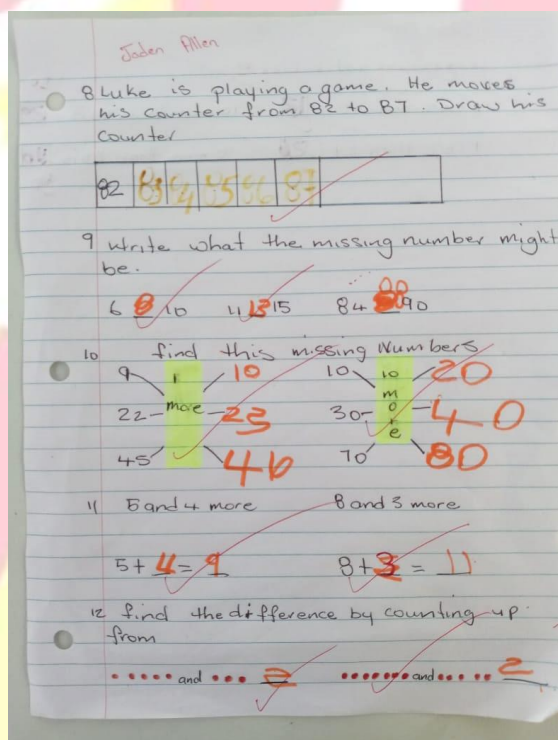 Jaden Allen
8 Luke is playing a game. He moves
his counter from 82 to 87. Draw his
counter
82 83 84 85 86 87
9 Write what the missing number might
be.
6 8 10 11 13 15 84 90
10 find this missing Numbers
9 1 10 10 10 20
22 more 23 30 more 40
45 46 70 80
11 5 and 4 more 8 and 3 more
5 + 4 = 9 8 + 3 = 11
12 find the difference by counting up
from
and 2 and 2